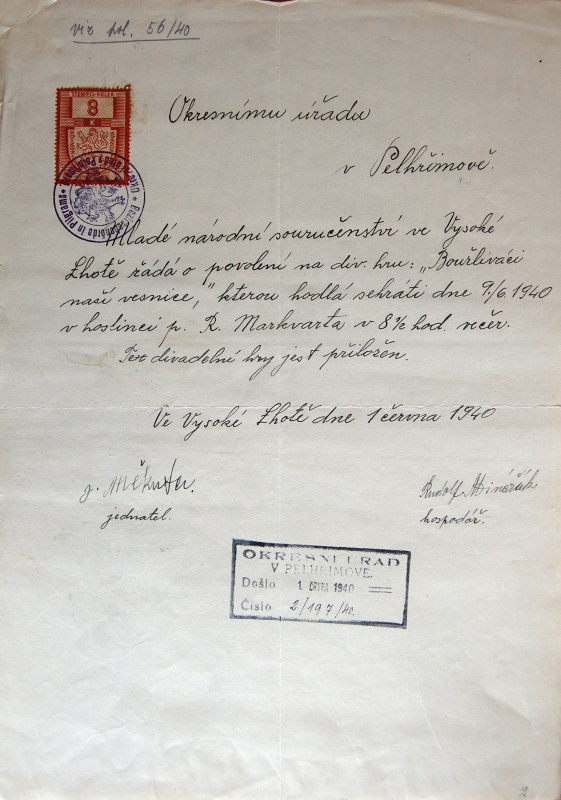 viz pol. 56/40
STEMPEL-KOLEK
8
K
Okresnímu úřadu
v Pelhřimově.
Mladé národní souručenství ve Vysoké
Lhotě řádá o povolení na div. hru: „Bouřliváci
naší vesnice," kterou hodlá sehráti dne 9./6. 1940
v hostinci p. R. Markvarta v 8 ½ hod. večer.
Text divadelní hry jest přiložen.
Ve Vysoké Lhotě dne 1 června 1940
J.
Rudolf
jednatel.
hospodář.
OKRESNÍ ÚŘAD
V PELHŘIMOVĚ.
Došlo 1. ČRVNA 1940
Číslo 2/197/40.
2